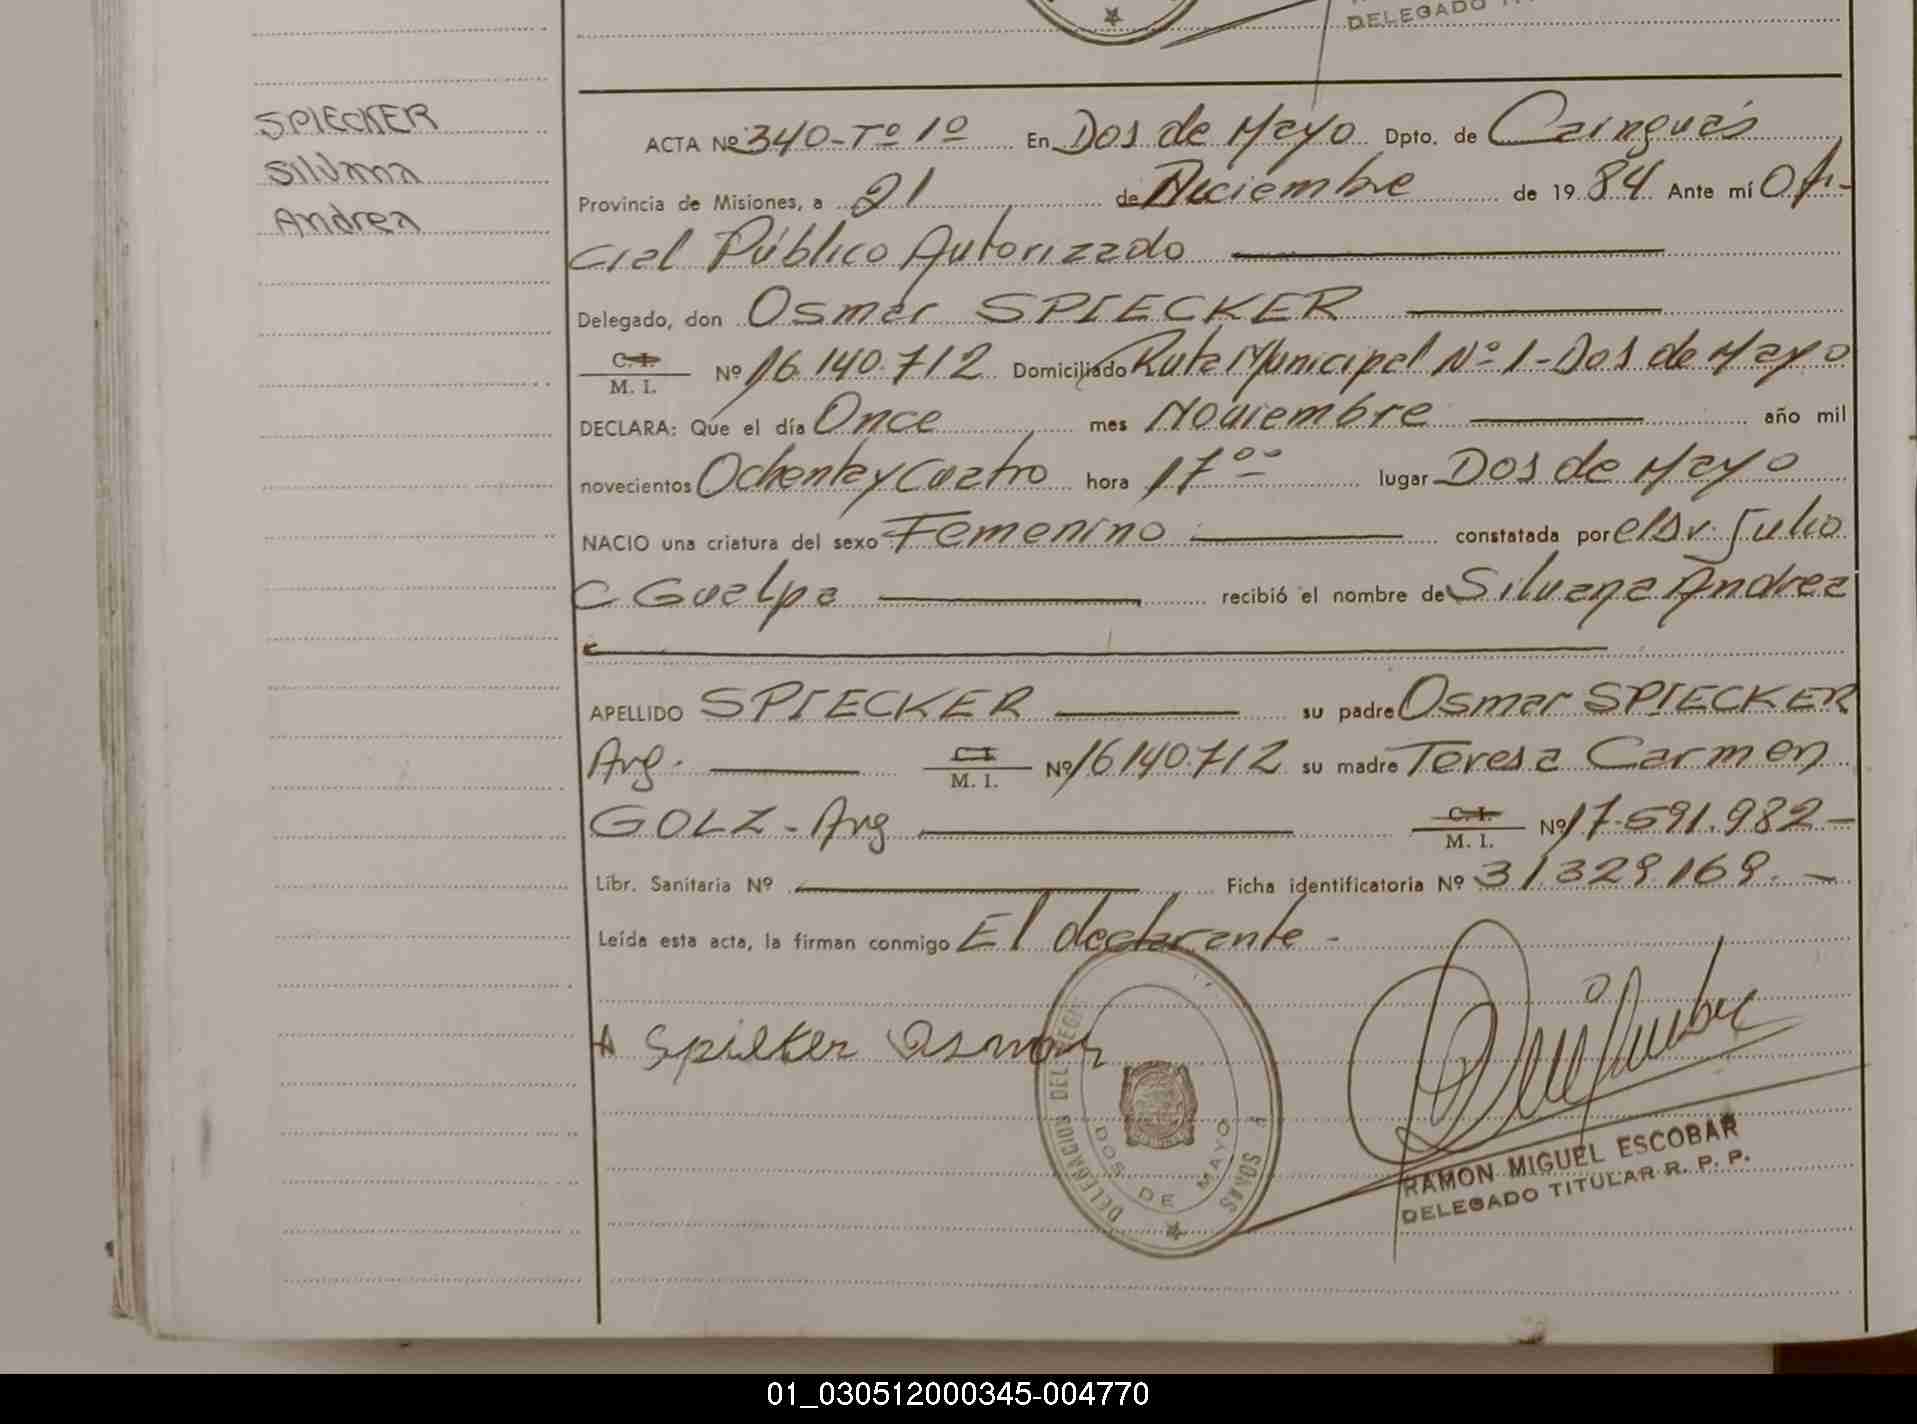 DELEGADO
SPIECKER
Silvana
Andrea
ACTA Nº 340-Tº 1º En Dos de Mayo Dpto. de Cainguás
Provincia de Misiones, a 21 de Diciembre de 1984 Ante mí Ofi-
cial Público Autorizado
Delegado, don Osmar SPIECKER
C. I.
M. I. Nº 16.140.712 Domiciliado Ruta Municipal Nº 1-Dos de Mayo
DECLARA: Que el día Once mes Noviembre año mil
novecientos Ochenta y Cuatro hora 17°° lugar Dos de Mayo
NACIO una criatura del sexo Femenino constatada por el Sr. Julio
C Guelpa recibió el nombre de Silvana Andrea
APELLIDO SPIECKER su padre Osmar SPIECKER
Arg. C. I. M. I. Nº 16140.712 su madre Teresa Carmen
GOLZ - Arg C. I. M. I. Nº 17.591.982-
Libr. Sanitaria Nº Ficha identificatoria Nº 31329.169.-
Leída esta acta, la firman conmigo El declarante -
Spieker Osmar
DOS DE MAYO
RAMON MIGUEL ESCOBAR
DELEGADO TITULAR R. P. P.
01_030512000345-004770